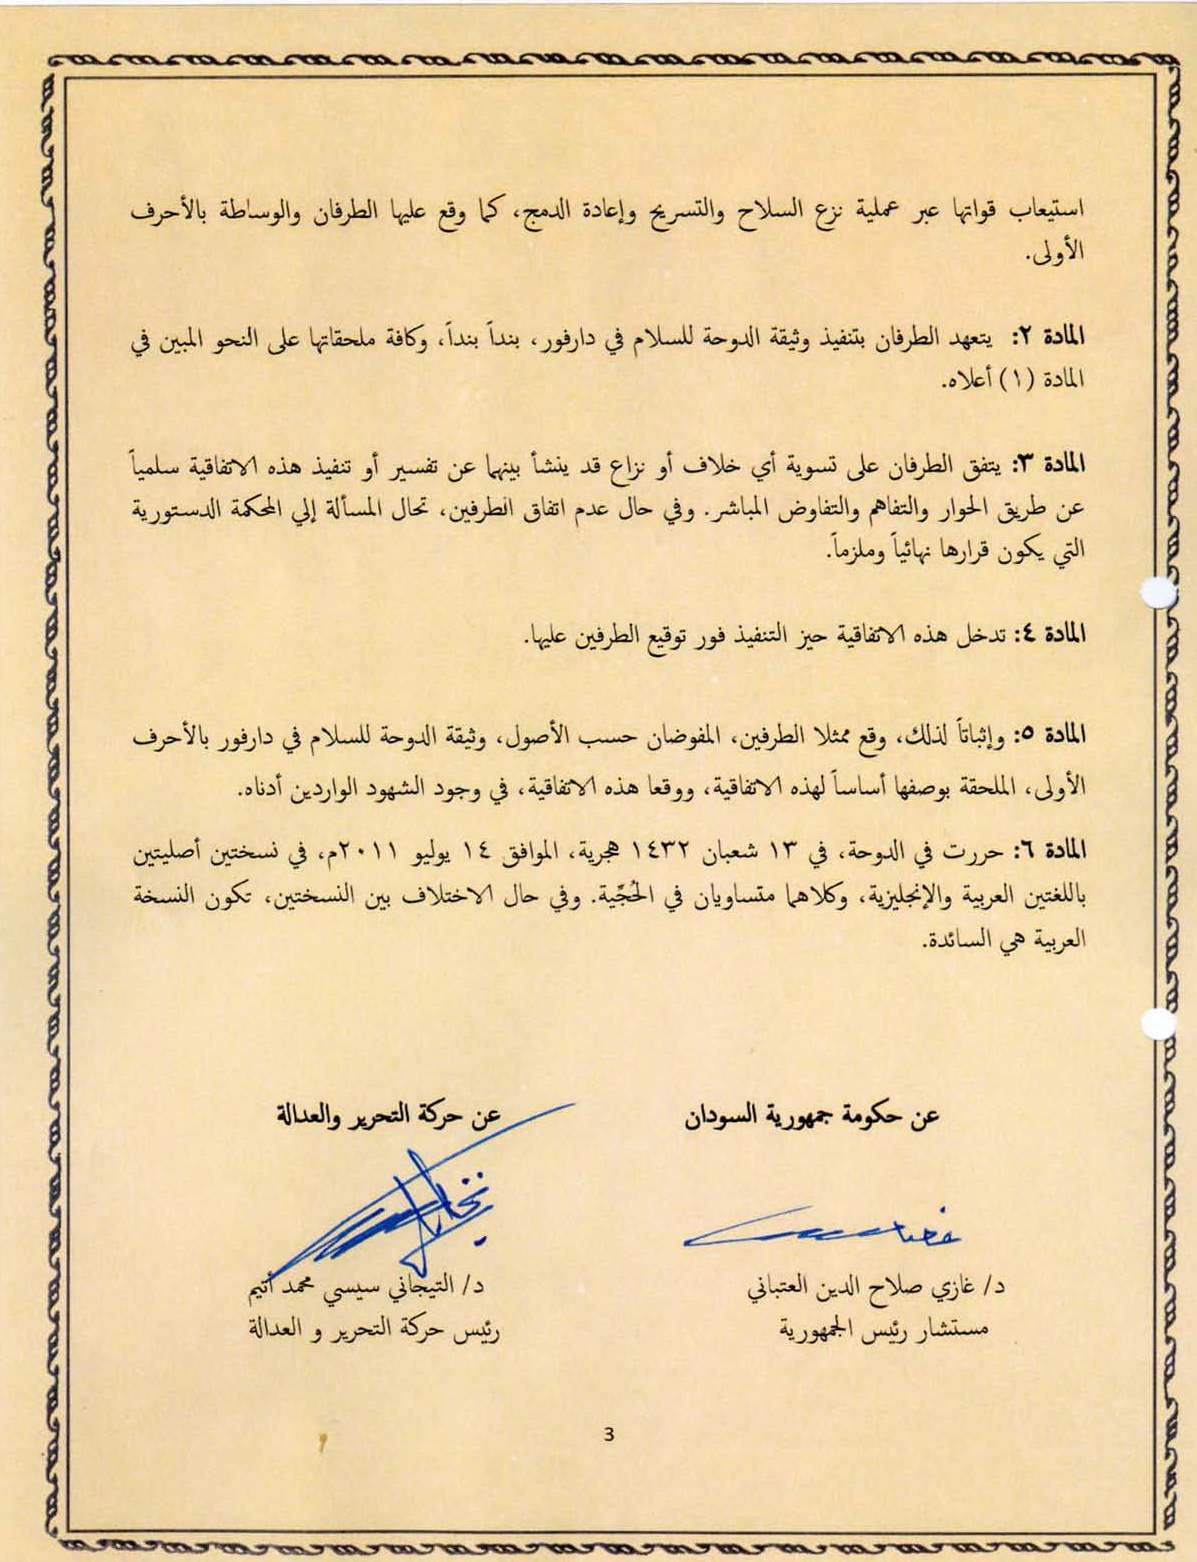 استيعاب قواتها عبر عملية نزع السلاح والتسريح وإعادة الدمج، كما وقع عليها الطرفان والوساطة بالأحرف
الأولى.
المادة ٢: يتعهد الطرفان بتنفيذ وثيقة الدوحة للسلام في دارفور، بنداً بنداً، وكافة ملحقاتها على النحو المبين في
المادة (١) أعلاه.
المادة ٣: يتفق الطرفان على تسوية أي خلاف أو نزاع قد ينشأ بينهما عن تفسير أو تنفيذ هذه الاتفاقية سلمياً
عن طريق الحوار والتفاهم والتفاوض المباشر. وفي حال عدم اتفاق الطرفين، تحال المسألة إلي المحكمة الدستورية
التي يكون قرارها نهائياً وملزماً.
المادة ٤: تدخل هذه الاتفاقية حيز التنفيذ فور توقيع الطرفين عليها.
المادة ٥: وإثباتاً لذلك، وقع ممثلا الطرفين، المفوضان حسب الأصول، وثيقة الدوحة للسلام في دارفور بالأحرف
الأولى، الملحقة بوصفها أساساً لهذه الاتفاقية، ووقعا هذه الاتفاقية، في وجود الشهود الواردين أدناه.
المادة ٦: حررت في الدوحة، في ١٣ شعبان ١٤٣٢ هجرية، الموافق ١٤ يوليو ٢٠١١م، في نسختين أصليتين
باللغتين العربية والإنجليزية، وكلاهما متساويان في الحُجِّية. وفي حال الاختلاف بين النسختين، تكون النسخة
العربية هي السائدة.
عن حكومة جمهورية السودان
عن حركة التحرير والعدالة
د/ غازي صلاح الدين العتباني
د/ التيجاني سيسي محمد أتيم
مستشار رئيس الجمهورية
رئيس حركة التحرير و العدالة
3